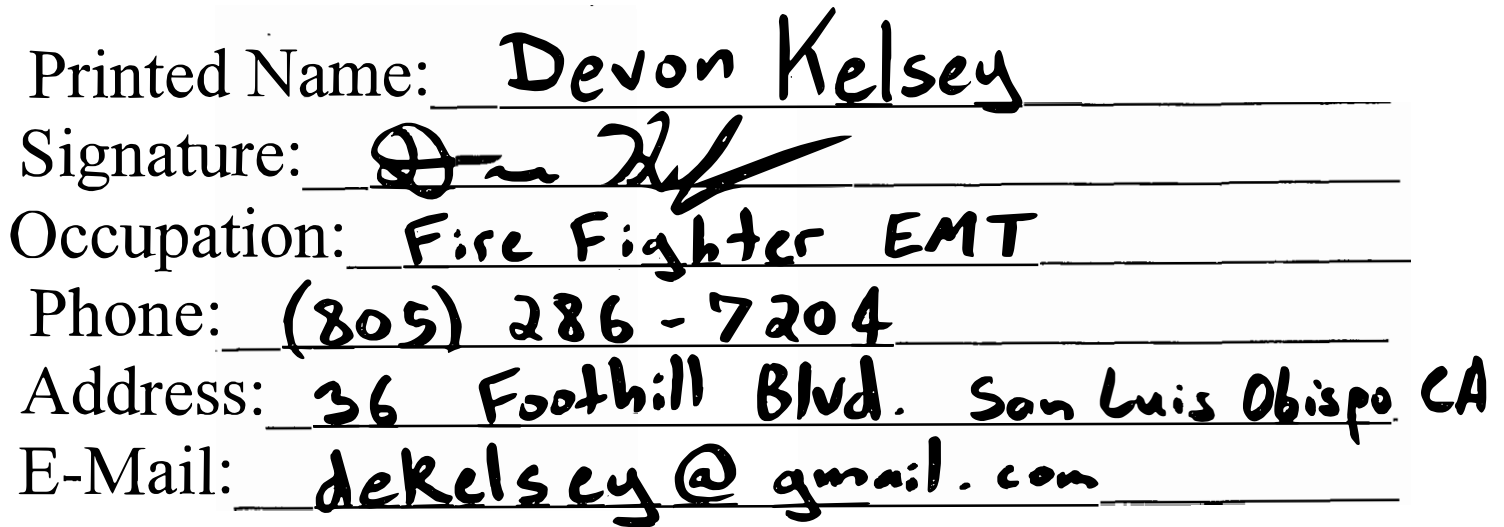 Printed Name: Devon Kelsey
Signature:
Occupation: Fire Fighter EMT
Phone: (805) 286-7204
Address: 36 Foothill Blvd. San Luis Obispo CA
E-Mail: dekelsey@gmail.com